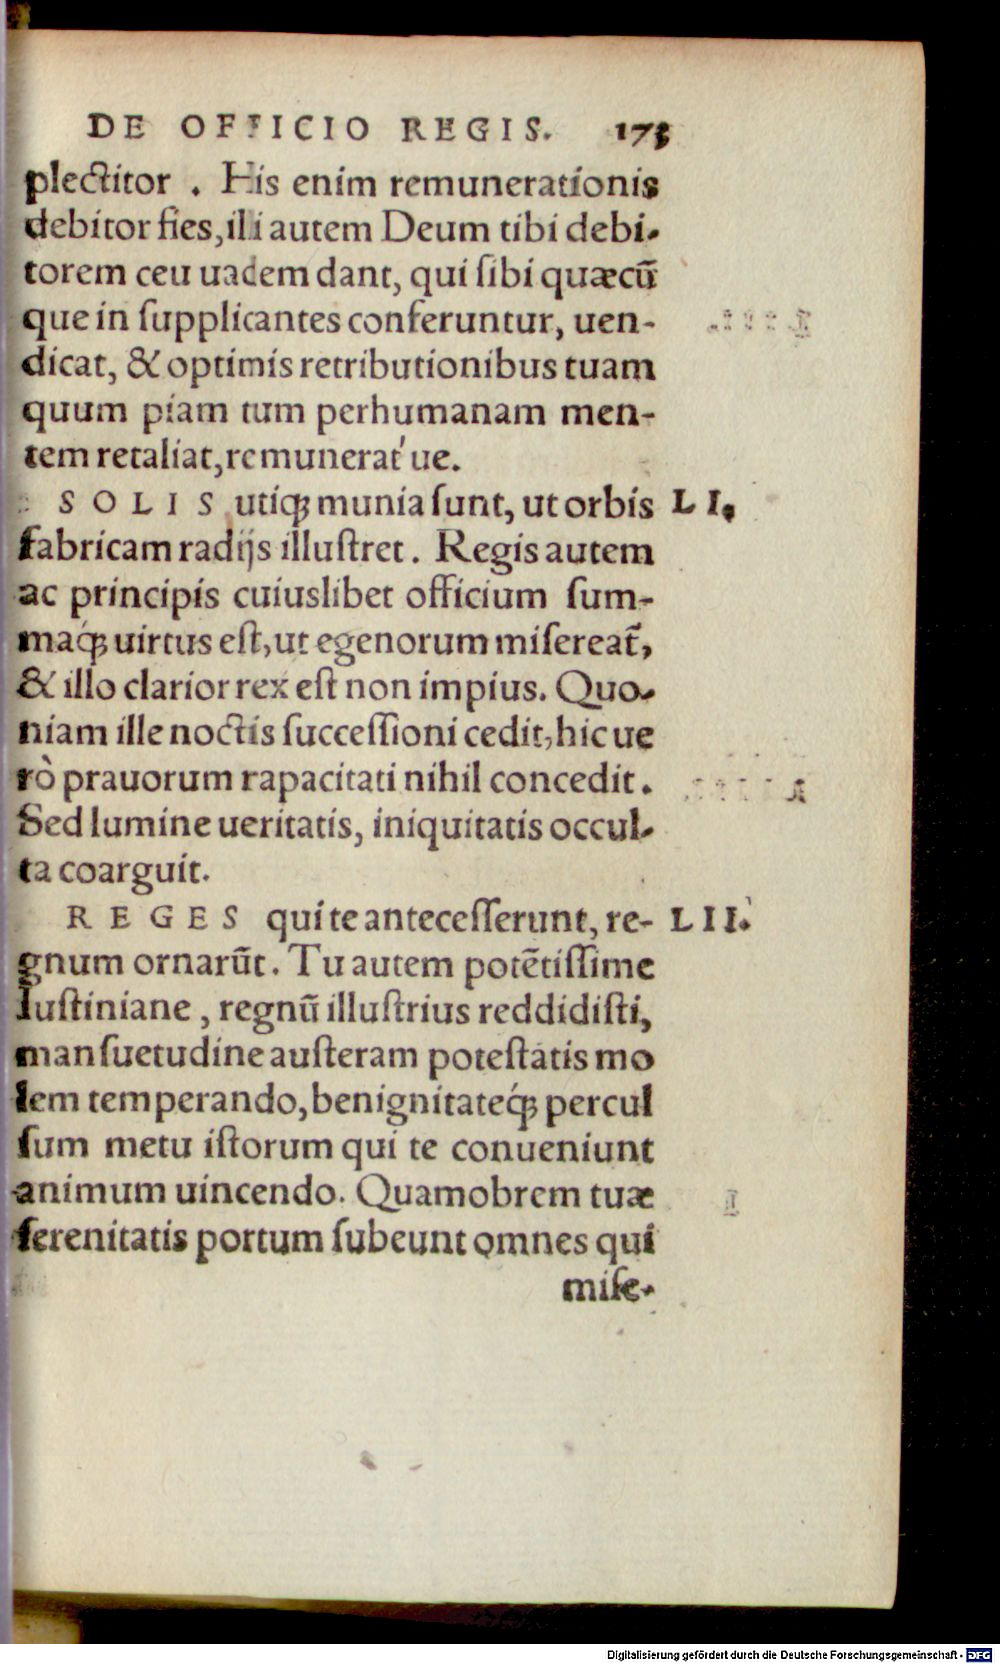 DE OFFICIO REGIS. 173
plectitor . His enim remunerationis
debitor fies, illi autem Deum tibi debi-
torem ceu uadem dant, qui ſibi quæcũ
que in ſupplicantes conferuntur, uen-
dicat, & optimis retributionibus tuam
quum piam tum perhumanam men-
tem retaliat, remunerat'ue.
SOLIS utiq́; munia ſunt, ut orbis LI.
fabricam radijs illuſtret. Regis autem
ac principis cuiuslibet officium ſum-
maq́; uirtus eſt, ut egenorum miſereat̃,
& illo clarior rex eſt non impius. Quo-
niam ille noctis ſucceſſioni cedit, hic ue
rò prauorum rapacitati nihil concedit.
Sed lumine ueritatis, iniquitatis occul-
ta coarguit.
REGES qui te anteceſſerunt, re- LII.
gnum ornarũt. Tu autem potẽtiſſime
Iuſtiniane, regnũ illuſtrius reddidiſti,
manſuetudine auſteram poteſtatis mo
lem temperando, benignitateq́; percul
ſum metu iſtorum qui te conueniunt
animum uincendo. Quamobrem tuæ
ſerenitatis portum ſubeunt omnes qui
miſe-
Digitalisierung gefördert durch die Deutsche Forschungsgemeinschaft - DFG